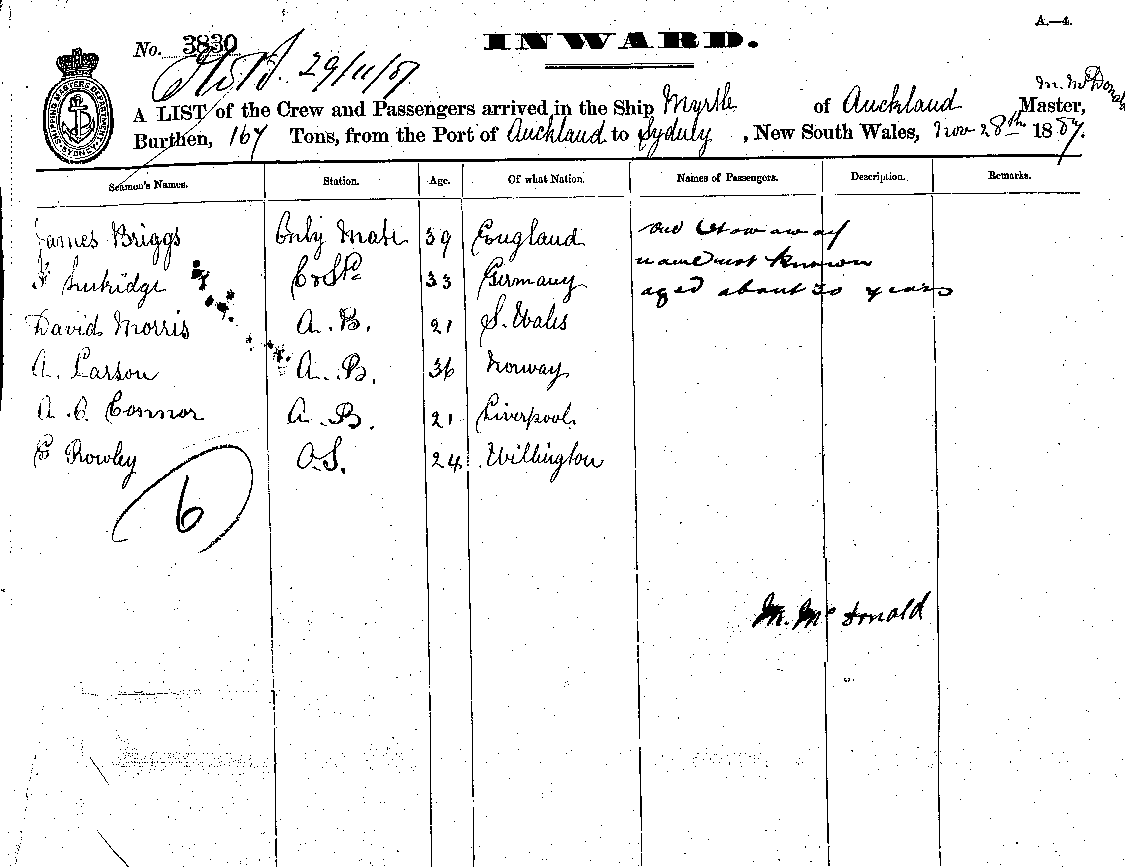 A.—4.
No. 3830 INWARD.
29/11/87
M. McDonald
A LIST of the Crew and Passengers arrived in the Ship Myrtle of Auckland Master,
Burthen, 167 Tons, from the Port of Auckland to Sydney, New South Wales, Nov 28th 1887.
Seamen's Names. Station. Age. Of what Nation. Names of Passengers. Description. Remarks.
James Briggs Only Mate 39 England one stowaway
33 Germany name not known
aged about 30 years
David Morris A.B. 21 S. Wales
A. Larson A.B. 36 Norway
A. O. Connor A.B. 21 Liverpool
E Rowley O.S. 24 Willington
6
M. McDonald